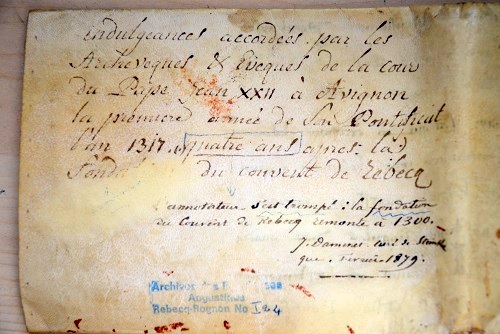 indulgeances accordées par les
Archeveques & Eveques de la cour
du Pape Jean XXII à Avignon
la première année de son Pontificat
l'an 1317. quatre ans apres la
du couvent de Rebecq
L'annotateur s'est trompé : la fondation
du Couvent de Rebecq remonte à 1300.
J. Daminet curé de
que. Fevrier 1879.
Augustines
Rebecq-Rognon No I 24